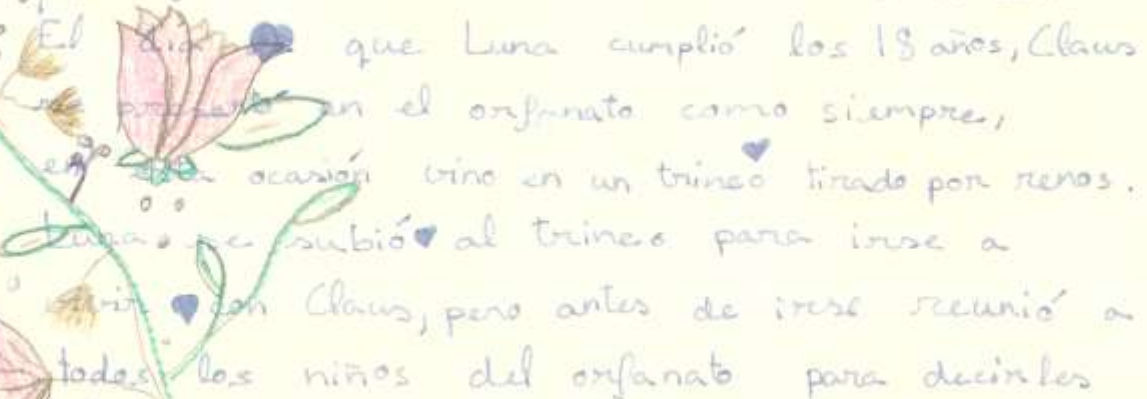 El día que Luna cumplió los 18 años, Claus
se presentó en el orfanato como siempre,
en esta ocasión vino en un trineo tirado por renos.
Luna se subió al trineo para irse a
vivir con Claus, pero antes de irse reunió a
todos los niños del orfanato para decirles